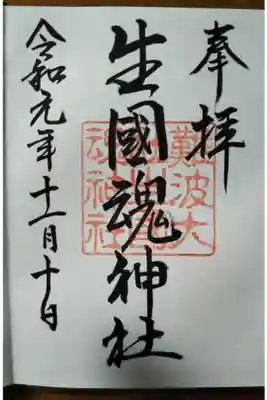 奉拝
生國魂神社
令和元年十一月十日
難波大
魂神社